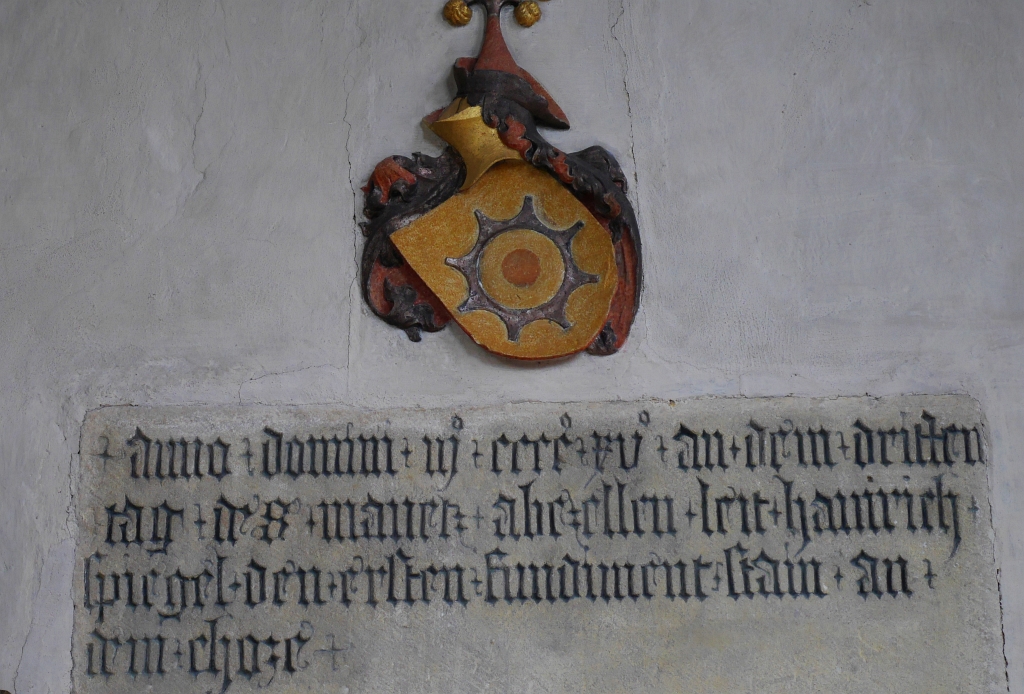 + anno + domini + mͦ + ccccͦ + xvͦ + an + dem + dritten
tag + des + manetz + abrellen + leit + hainrich +
spiegel + den + ersten + fundiment + stain + an +
dem + chore +